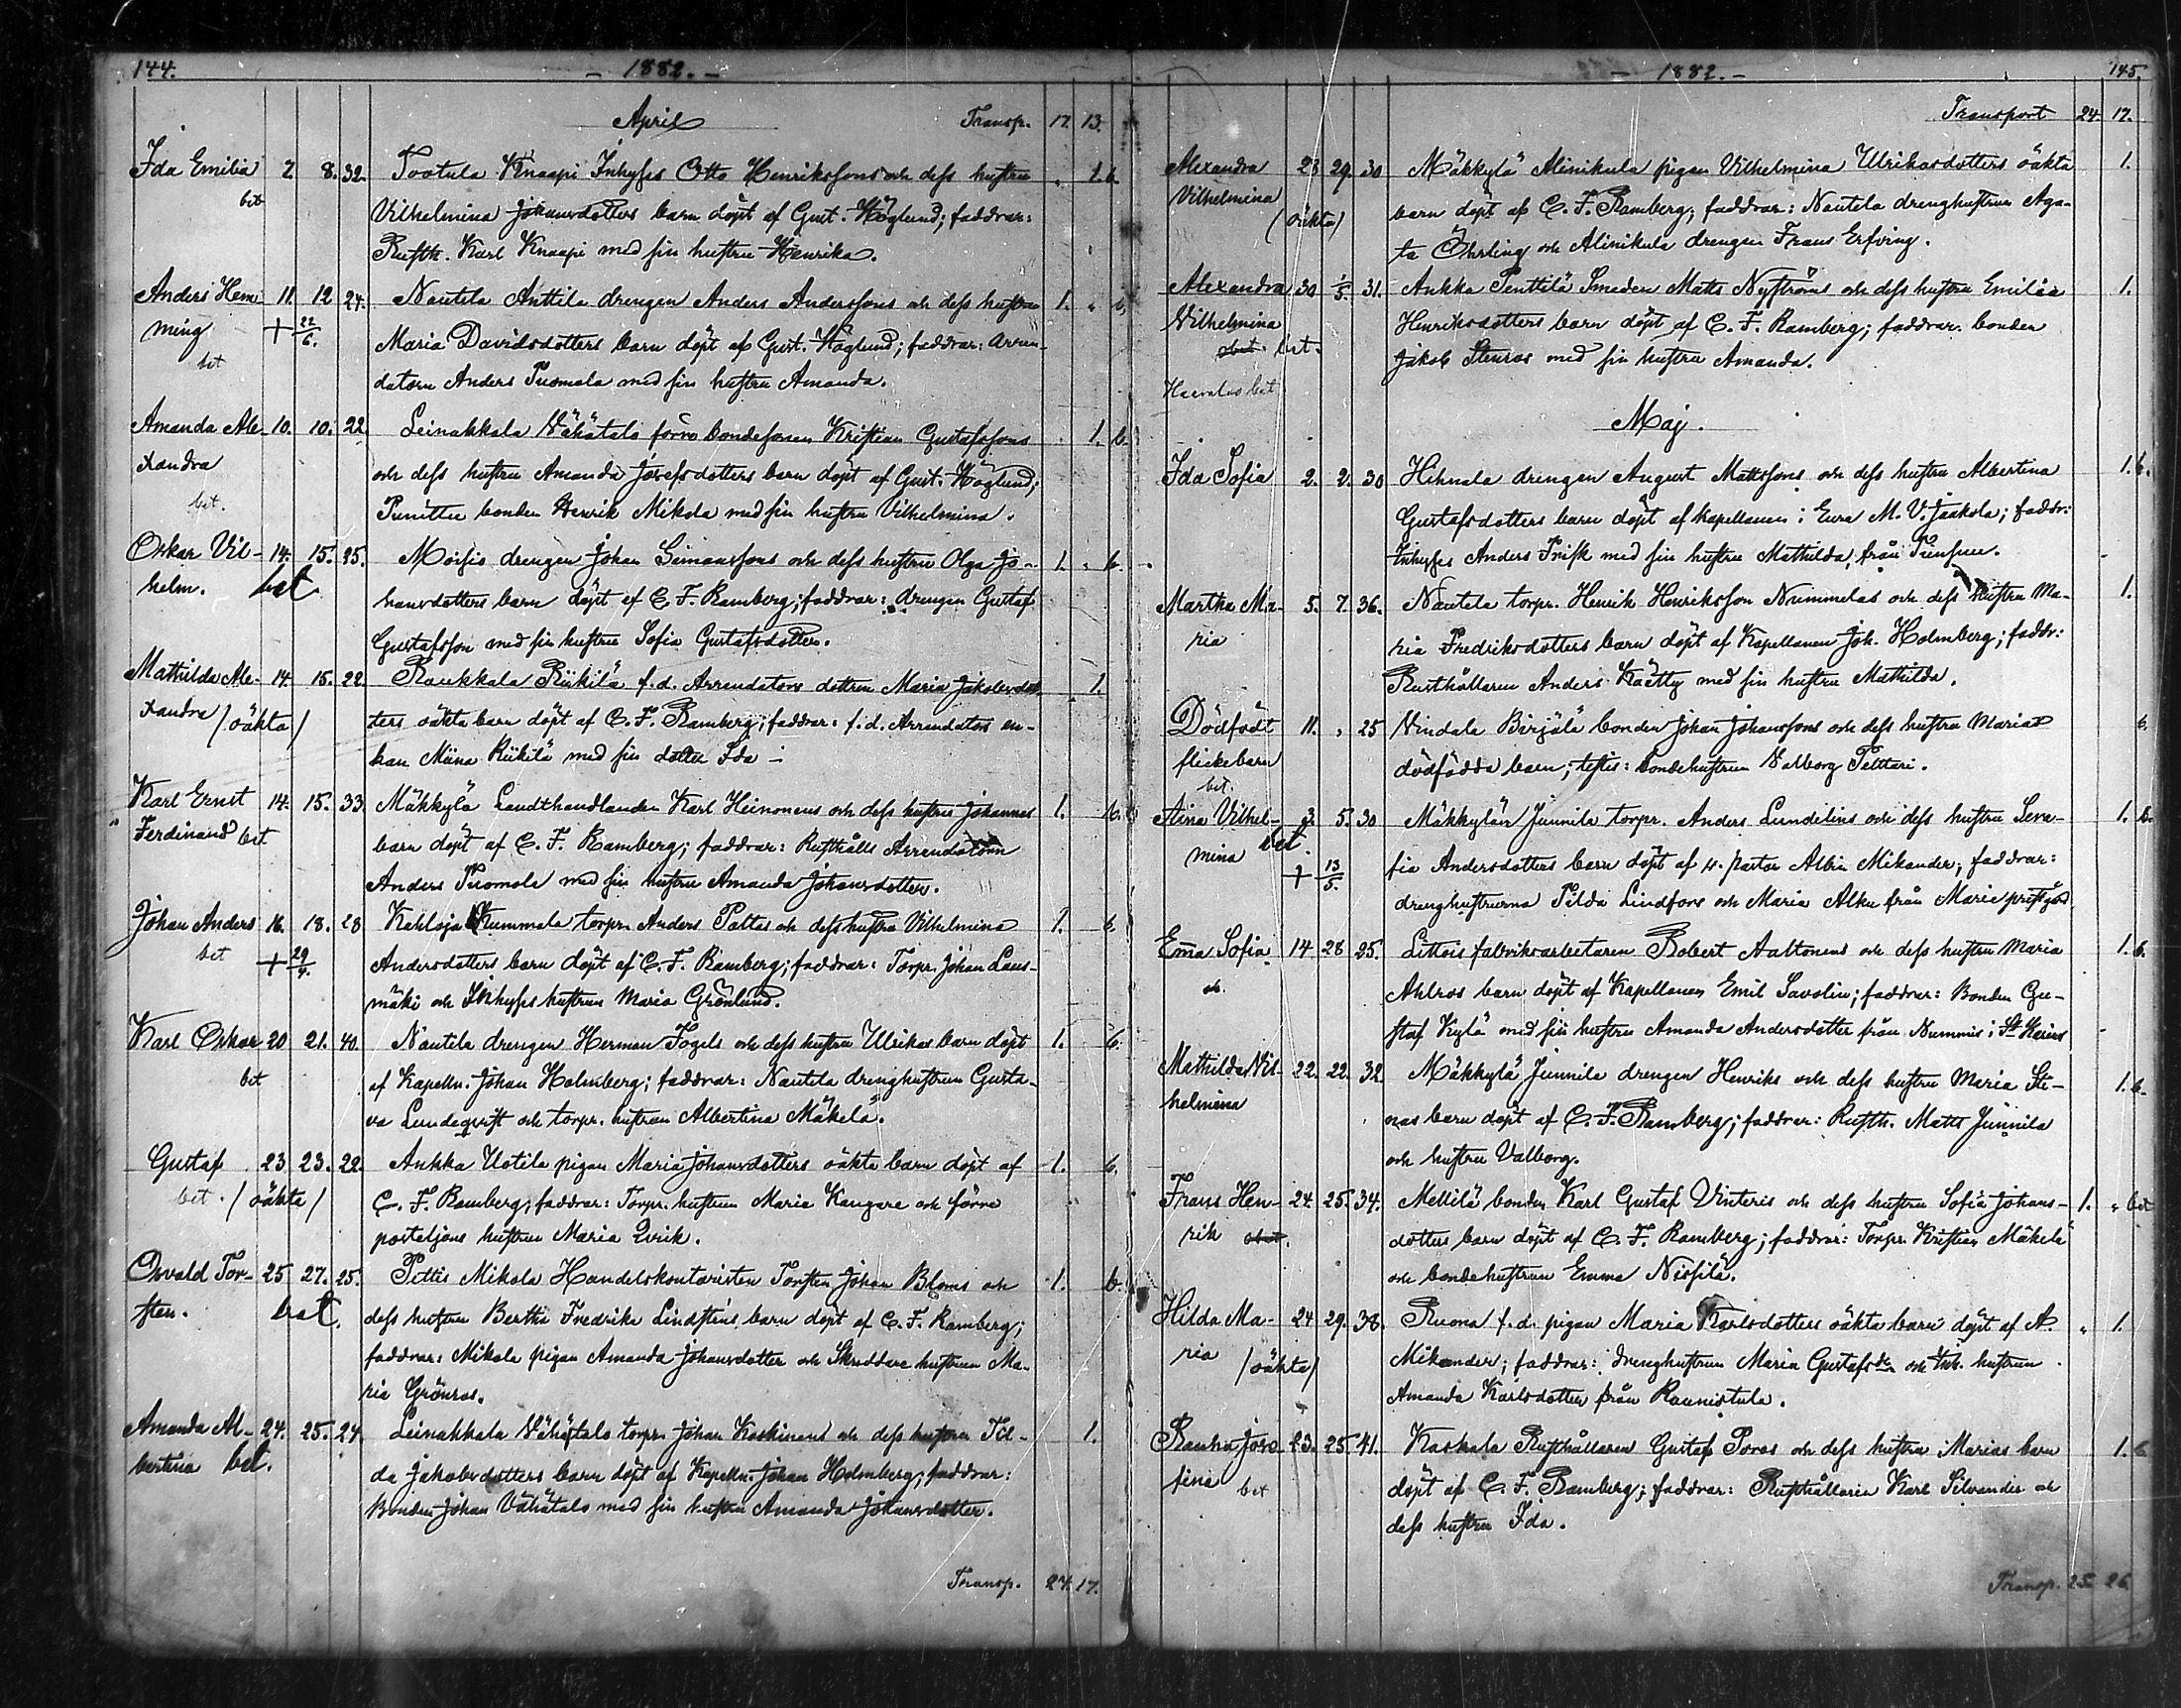 144.
- 1882. -
April Transp. 17. 13.
Ida Emilia 7. 8. 32. Tootula Knaapi Inhyses Otto Henrikssons och dess hustru „ 1. b.
bet Vilhelmina Johansdotters barn döpt af Gust. Höglund; faddrar:
Rusth. Karl Knaapi med sin hustru Henrika.
Anders Hem- 11. 12 24. Nautela Anttila drengen Anders Anderssons och dess hustru 1. „ b.
ming + 22/6. Maria Davidsdotters barn döpt af Gust. Höglund; faddrar: Arren-
bet datorn Anders Tuomola med sin hustru Amanda.
Amanda Ale- 10. 10. 22. Leinakkala Vähätalo förre bondesonen Kristian Gustafssons 1. b.
xandra och dess hustru Amanda Josefsdotters barn döpt af Gust. Höglund;
bet. Punittu bonden Henrik Mikola med sin hustru Vilhelmina.
Oskar Vil- 14. 15. 25. Moisio drengen Johan Simonssons och dess hustru Olga Jo- 1. „ b.
helm. bet hansdotters barn döpt af C. F. Ramberg; faddrar: drengen Gustaf
Gustafsson med sin hustru Sofia Gustafsdotter.
Mathilda Ale- 14. 15. 22. Raukkala Riikilä f. d. Arrendators dottren Maria Jakobsdot- 1.
xandra /oäkta/ ters oäkta barn döpt af C. F. Ramberg; faddrar: f. d. Arrendators en-
kan Miina Riikilä med sin dotter Ida -
Karl Ernst 14. 15. 33. Mäkkylä Landthandlanden Karl Heinonens och dess hustrus Johannas 1. b.
Ferdinand bet barn döpt af C. F. Ramberg; faddrar: Rusthålls Arrendatorn
Anders Tuomola med sin hustru Amanda Johansdotter.
Johan Anders 16. 18. 28 Kahloja Kummala torpr. Anders Paltas och dess hustru Vilhelmina 1. b.
bet + 29/4. Andersdotters barn döpt af C. F. Ramberg; faddrar: Torpr. Johan Laus-
mäki och Inhyses hustrun Maria Grönlund.
Karl Oskar 20 21. 40. Nautela drengen Herman Fogels och dess hustru Ulrikas barn döpt 1. b.
bet af Kapelln. Johan Holmberg; faddrar: Nautela drenghustrun Gusta-
va Lundeqvist och torpr. hustrun Albertina Mäkelä.
Gustaf 23 23. 22. Ankka Uotila pigan Maria Johansdotters oäkta barn döpt af 1. b.
bet. /oäkta/ C. F. Ramberg; faddrar: Torpr. hustrun Maria Kangare och förre
posteljons hustrun Maria Qvik.
Osvald Tor- 25 27. 25. Pettis Mikola Handelskontoristen Torsten Johan Bloms och 1. b.
sten. bet. dess hustrun Bertha Fredrika Lindsténs barn döpt af C. F. Ramberg;
faddrar: Mikola pigan Amanda Johansdotter och Skräddare hustrun Ma-
ria Grönros.
Amanda Al- 24. 25. 24. Leinakkala Vähätalo torpr. Johan Koskinens och dess hustru Til- 1.
bertina bet. da Jakobsdotters barn döpt af Kapelln. Johan Holmberg; faddrar:
Bonden Johan Vähätalo med sin hustru Amanda Johansdotter.
Transp. 24. 17.
- 1882. -
145.
Transport 24. 17.
Alexandra 23 29. 30 Mäkkylä Alinikula pigan Vilhelmina Ulrikasdotters oäkta 1.
Vilhelmina barn döpt af C. F. Ramberg; faddrar: Nautela drenghustrun Aga-
/oäkta/ ta Öhrling och Alinikula drengen Frans Erfving.
Alexandra 30 1/5. 31. Ankka Penttilä Smeden Matts Nyströms och dess hustru Emilia 1.
Vilhelmina Henriksdotters barn döpt af C. F. Ramberg; faddrar: bonden
bet. Jakob Stenros med sin hustru Amanda.
bet
Maj.
Ida Sofia 2. 2. 30 Hihnala drengen August Mattssons och dess hustru Albertina 1. b.
Gustafsdotters barn döpt af Kapellanen i Eura M. V. Jaakola; faddr:
Inhyses Anders Frisk med sin hustru Mathilda, från
Martha Ma- 5. 7. 36. Nautela torpr. Henrik Henriksson Nummelas och dess hustru Ma- 1.
ria ria Fredriksdotters barn döpt af Kapellanen Joh. Holmberg; faddr:
Rusthållaren Anders Kaetty med sin hustru Mathilda.
Dödfödt 11. „ 25 Vindala Birjälä bonden Johan Johanssons och dess hustru Marias b.
flickebarn dödfödda barn; testis: bondehustrun Valborg Pelttari.
bet.
Aina Vilhel- 3. 5. 30 Mäkkylän Junnila torpr. Anders Lundelins och dess hustru Sera- 1. b.
mina bet. fia Andersdotters barn döpt af v. pastor Albin Mikander; faddrar:
+ 13/5. drenghustrurna Tilda Lindfors och Maria Alku från Marie prestgård
Ema Sofia 14 28 25. Littois fabriksarbetaren Robert Aaltonens och dess hustru Maria 1. b.
Ahlros barn döpt af Kapellanen Emil Savolin; faddrar: Bonden Gu-
staf Kylä med sin hustru Amanda Andersdotter från Nummis i St Karins
Mathilda Vil- 22. 22. 32 Mäkkylä Junnila drengen Henriks och dess hustru Maria Sti- 1. b.
helmina nas barn döpt af C. F. Ramberg; faddrar: Rusth. Matts Junnila
och hustru Valborg.
Frans Hen- 24. 25. 34. Mellilä bonden Karl Gustaf Vinteris och dess hustru Sofia Johans- 1. „ bet
rik dotters barn döpt af C. F. Ramberg; faddrar: Torpr. Kristian Mäkelä
och bondehustrun Emma Nissilä.
Hilda Ma- 24 29. 38. Ruona f. d. pigan Maria Karlsdotters oäkta barn döpt af A. „ 1.
ria /oäkta/ Mikander; faddrar: drenghustrun Maria Gustafsdr och Inh. hustrun
Amanda Karlsdotter från Raunistula.
Rauha Jose- 23. 25. 41. Kaskala Rusthållaren Gustaf Poras och dess hustru Marias barn 1. b
fina bet döpt af C. F. Ramberg; faddrar: Rusthållaren Karl Silvander och
dess hustru Ida.
Transp. 25. 26.